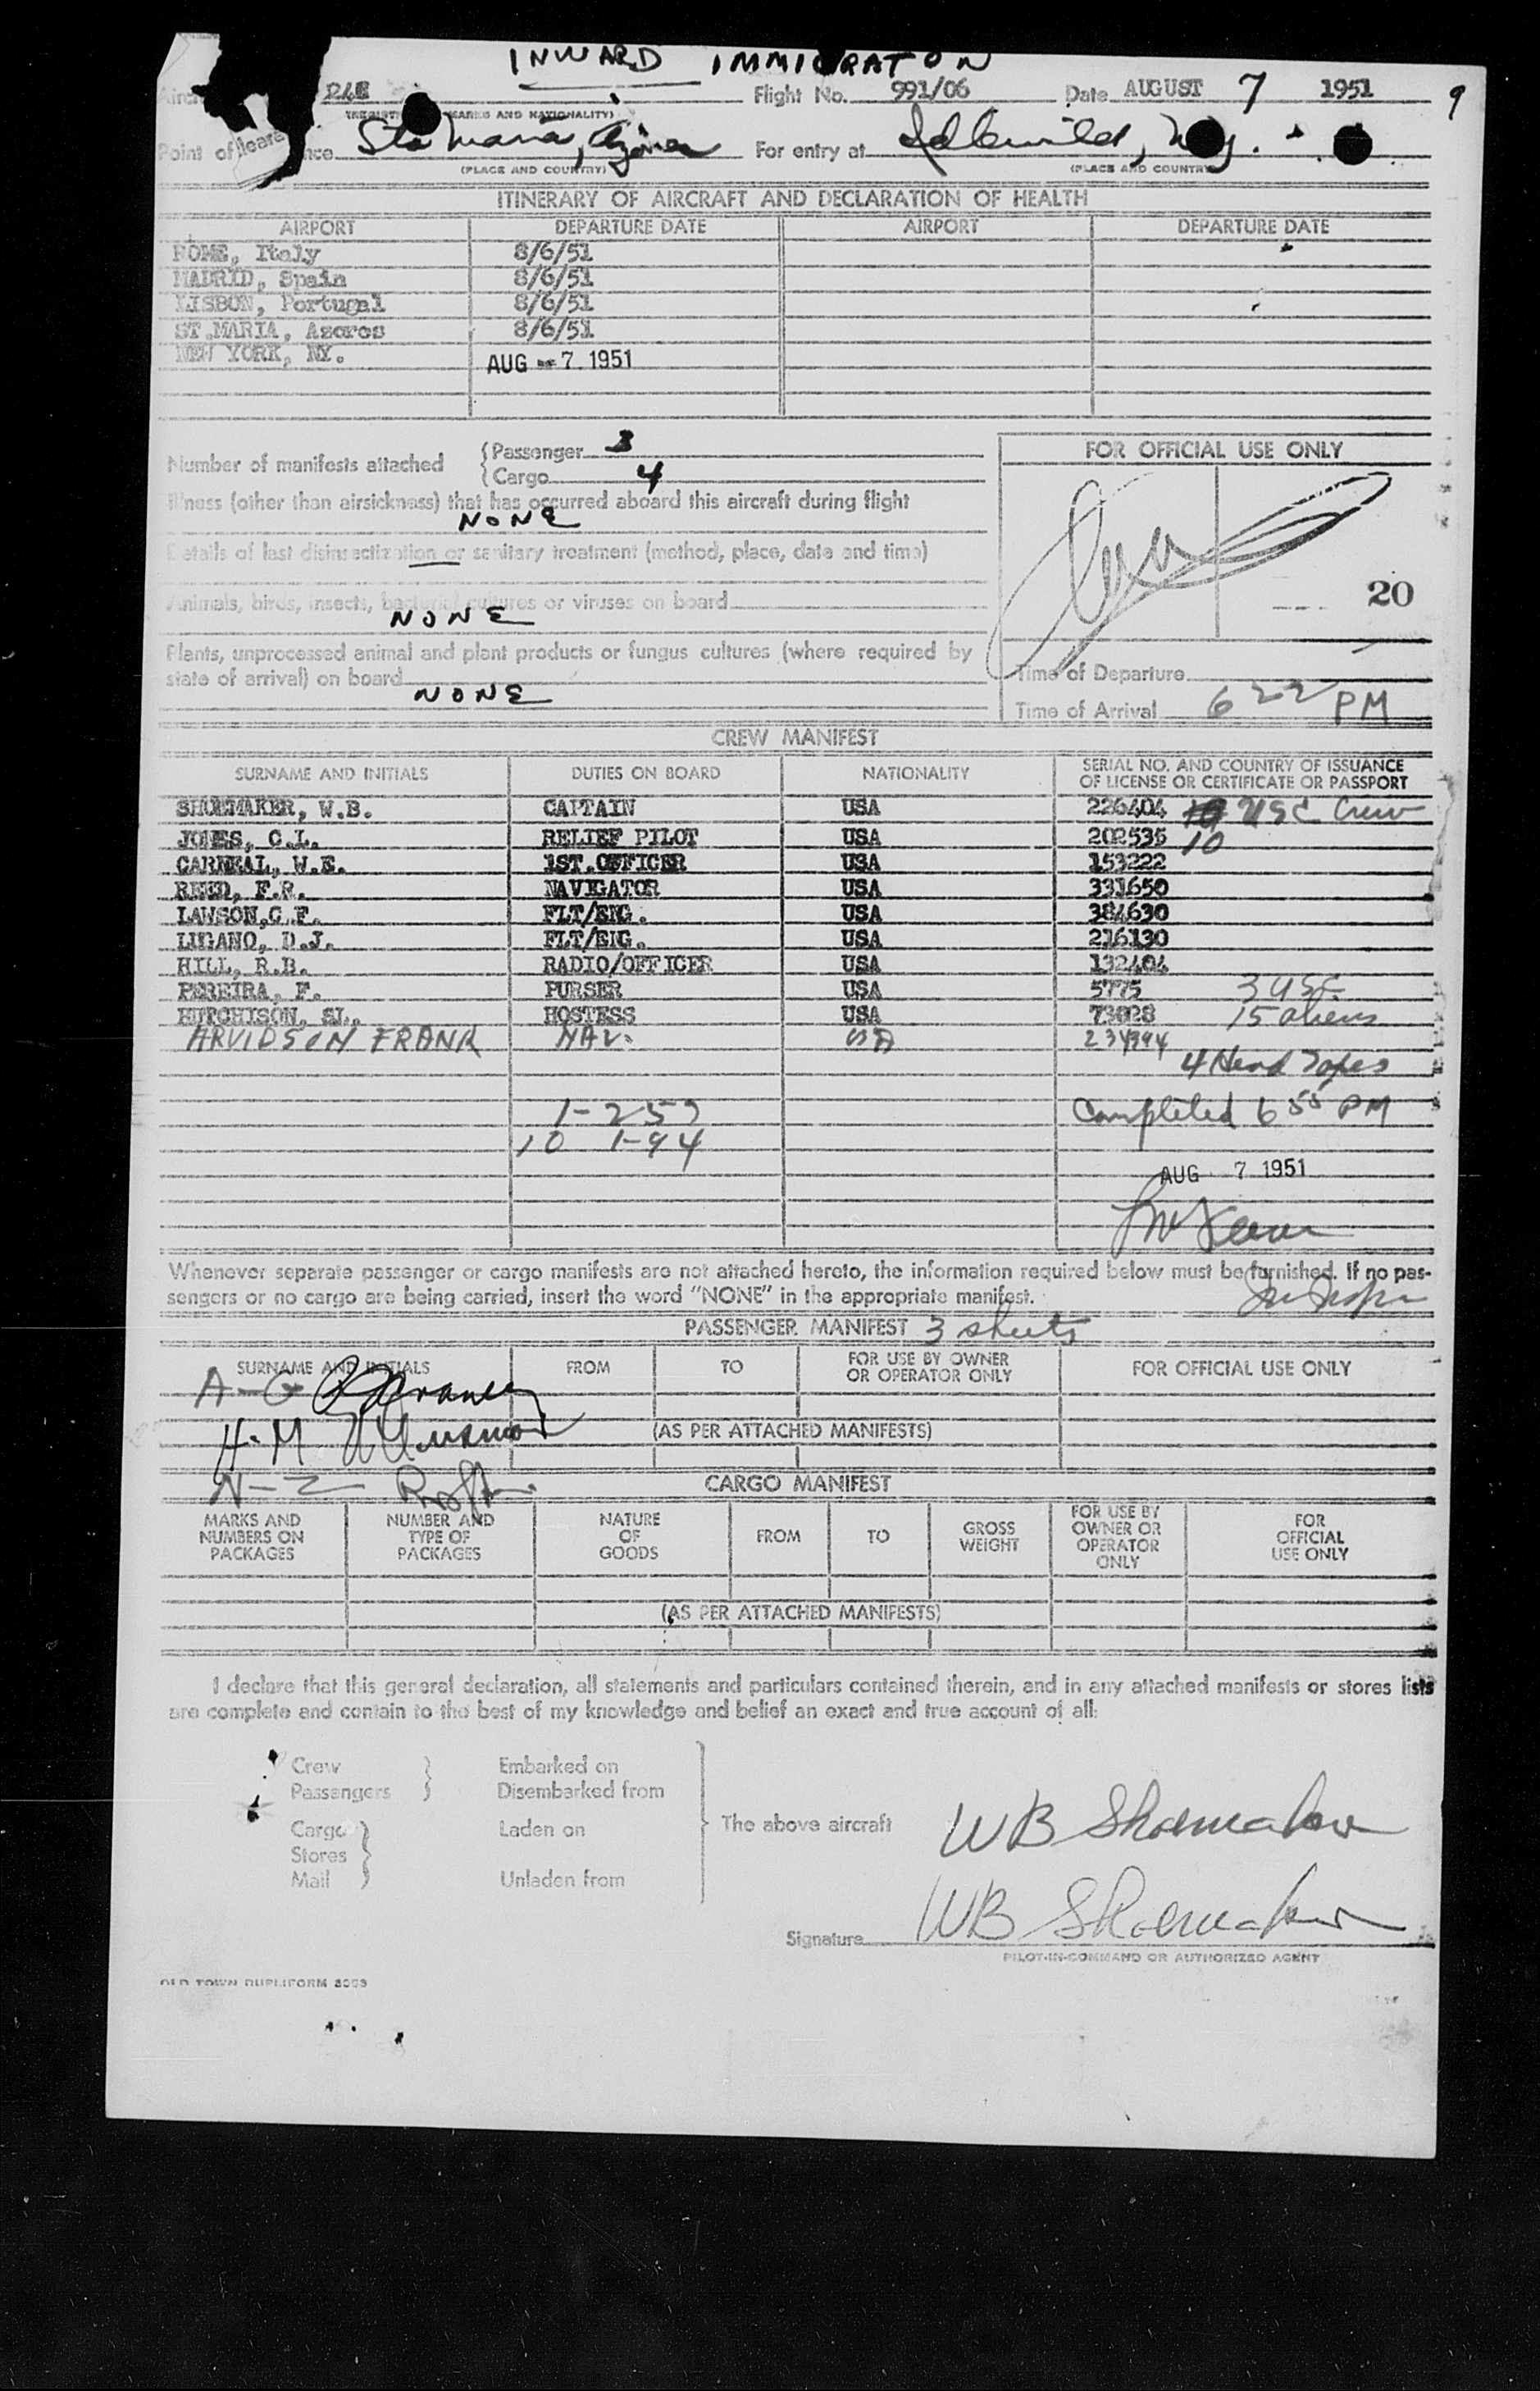 INWARD IMMIGRATON
Flight No. 991/06 Date AUGUST 7 1951 9
(REGISTRATION MARKS AND NATIONALITY)
Point of Clearance Sta Maria, Azores For entry at Idlewild, N.Y.
(PLACE AND COUNTRY) (PLACE AND COUNTRY)
ITINERARY OF AIRCRAFT AND DECLARATION OF HEALTH
AIRPORT DEPARTURE DATE AIRPORT DEPARTURE DATE
ROME, Italy 8/6/51
MADRID, Spain 8/6/51
LISBON, Portugal 8/6/51
ST.MARIA, Azores 8/6/51
NEW YORK, NY. AUG - 7 1951
Number of manifests attached { Passenger 3
{ Cargo 4
FOR OFFICIAL USE ONLY
Illness (other than airsickness) that has occurred aboard this aircraft during flight
NONE
Details of last disinsectization or sanitary treatment (method, place, date and time)
Animals, birds, insects, bacterial cultures or viruses on board
NONE
20
Plants, unprocessed animal and plant products or fungus cultures (where required by
state of arrival) on board
NONE
Time of Departure
Time of Arrival 6 22 PM
CREW MANIFEST
SURNAME AND INITIALS DUTIES ON BOARD NATIONALITY SERIAL NO. AND COUNTRY OF ISSUANCE
OF LICENSE OR CERTIFICATE OR PASSPORT
SHOEMAKER, W.B. CAPTAIN USA 226404 USC Crew
JONES, C.L. RELIEF PILOT USA 202535 10
CARNEAL, W.E. 1ST.OFFICER USA 153222
REED, F.R. NAVIGATOR USA 331650
LAWSON,C.F. FLT/ENG. USA 384630
LUGANO, D.J. FLT/ENG. USA 216130
HILL, R.B. RADIO/OFFICER USA 132404
PEREIRA, F. PURSER USA 5775 3 USC
HUTCHISON, SL. HOSTESS USA 73028 15 aliens
ARVIDSON FRANK NAV. USA 234994
4 Head Taxes
1-257 Completed 6 55 PM
10 1-94
AUG 7 1951
Whenever separate passenger or cargo manifests are not attached hereto, the information required below must be furnished. If no pas-
sengers or no cargo are being carried, insert the word "NONE" in the appropriate manifest.
PASSENGER MANIFEST 3 sheets
SURNAME AND INITIALS FROM TO FOR USE BY OWNER
OR OPERATOR ONLY FOR OFFICIAL USE ONLY
A-G
H-M (AS PER ATTACHED MANIFESTS)
N-Z
CARGO MANIFEST
MARKS AND
NUMBERS ON
PACKAGES NUMBER AND
TYPE OF
PACKAGES NATURE
OF
GOODS FROM TO GROSS
WEIGHT FOR USE BY
OWNER OR
OPERATOR
ONLY FOR
OFFICIAL
USE ONLY
(AS PER ATTACHED MANIFESTS)
I declare that this general declaration, all statements and particulars contained therein, and in any attached manifests or stores lists
are complete and contain to the best of my knowledge and belief an exact and true account of all:
Crew Embarked on
Passengers } Disembarked from
Cargo Laden on The above aircraft WB Shoemaker
Stores }
Mail Unladen from
Signature WB Shoemaker
PILOT-IN-COMMAND OR AUTHORIZED AGENT
OLD TOWN DUPLIFORM